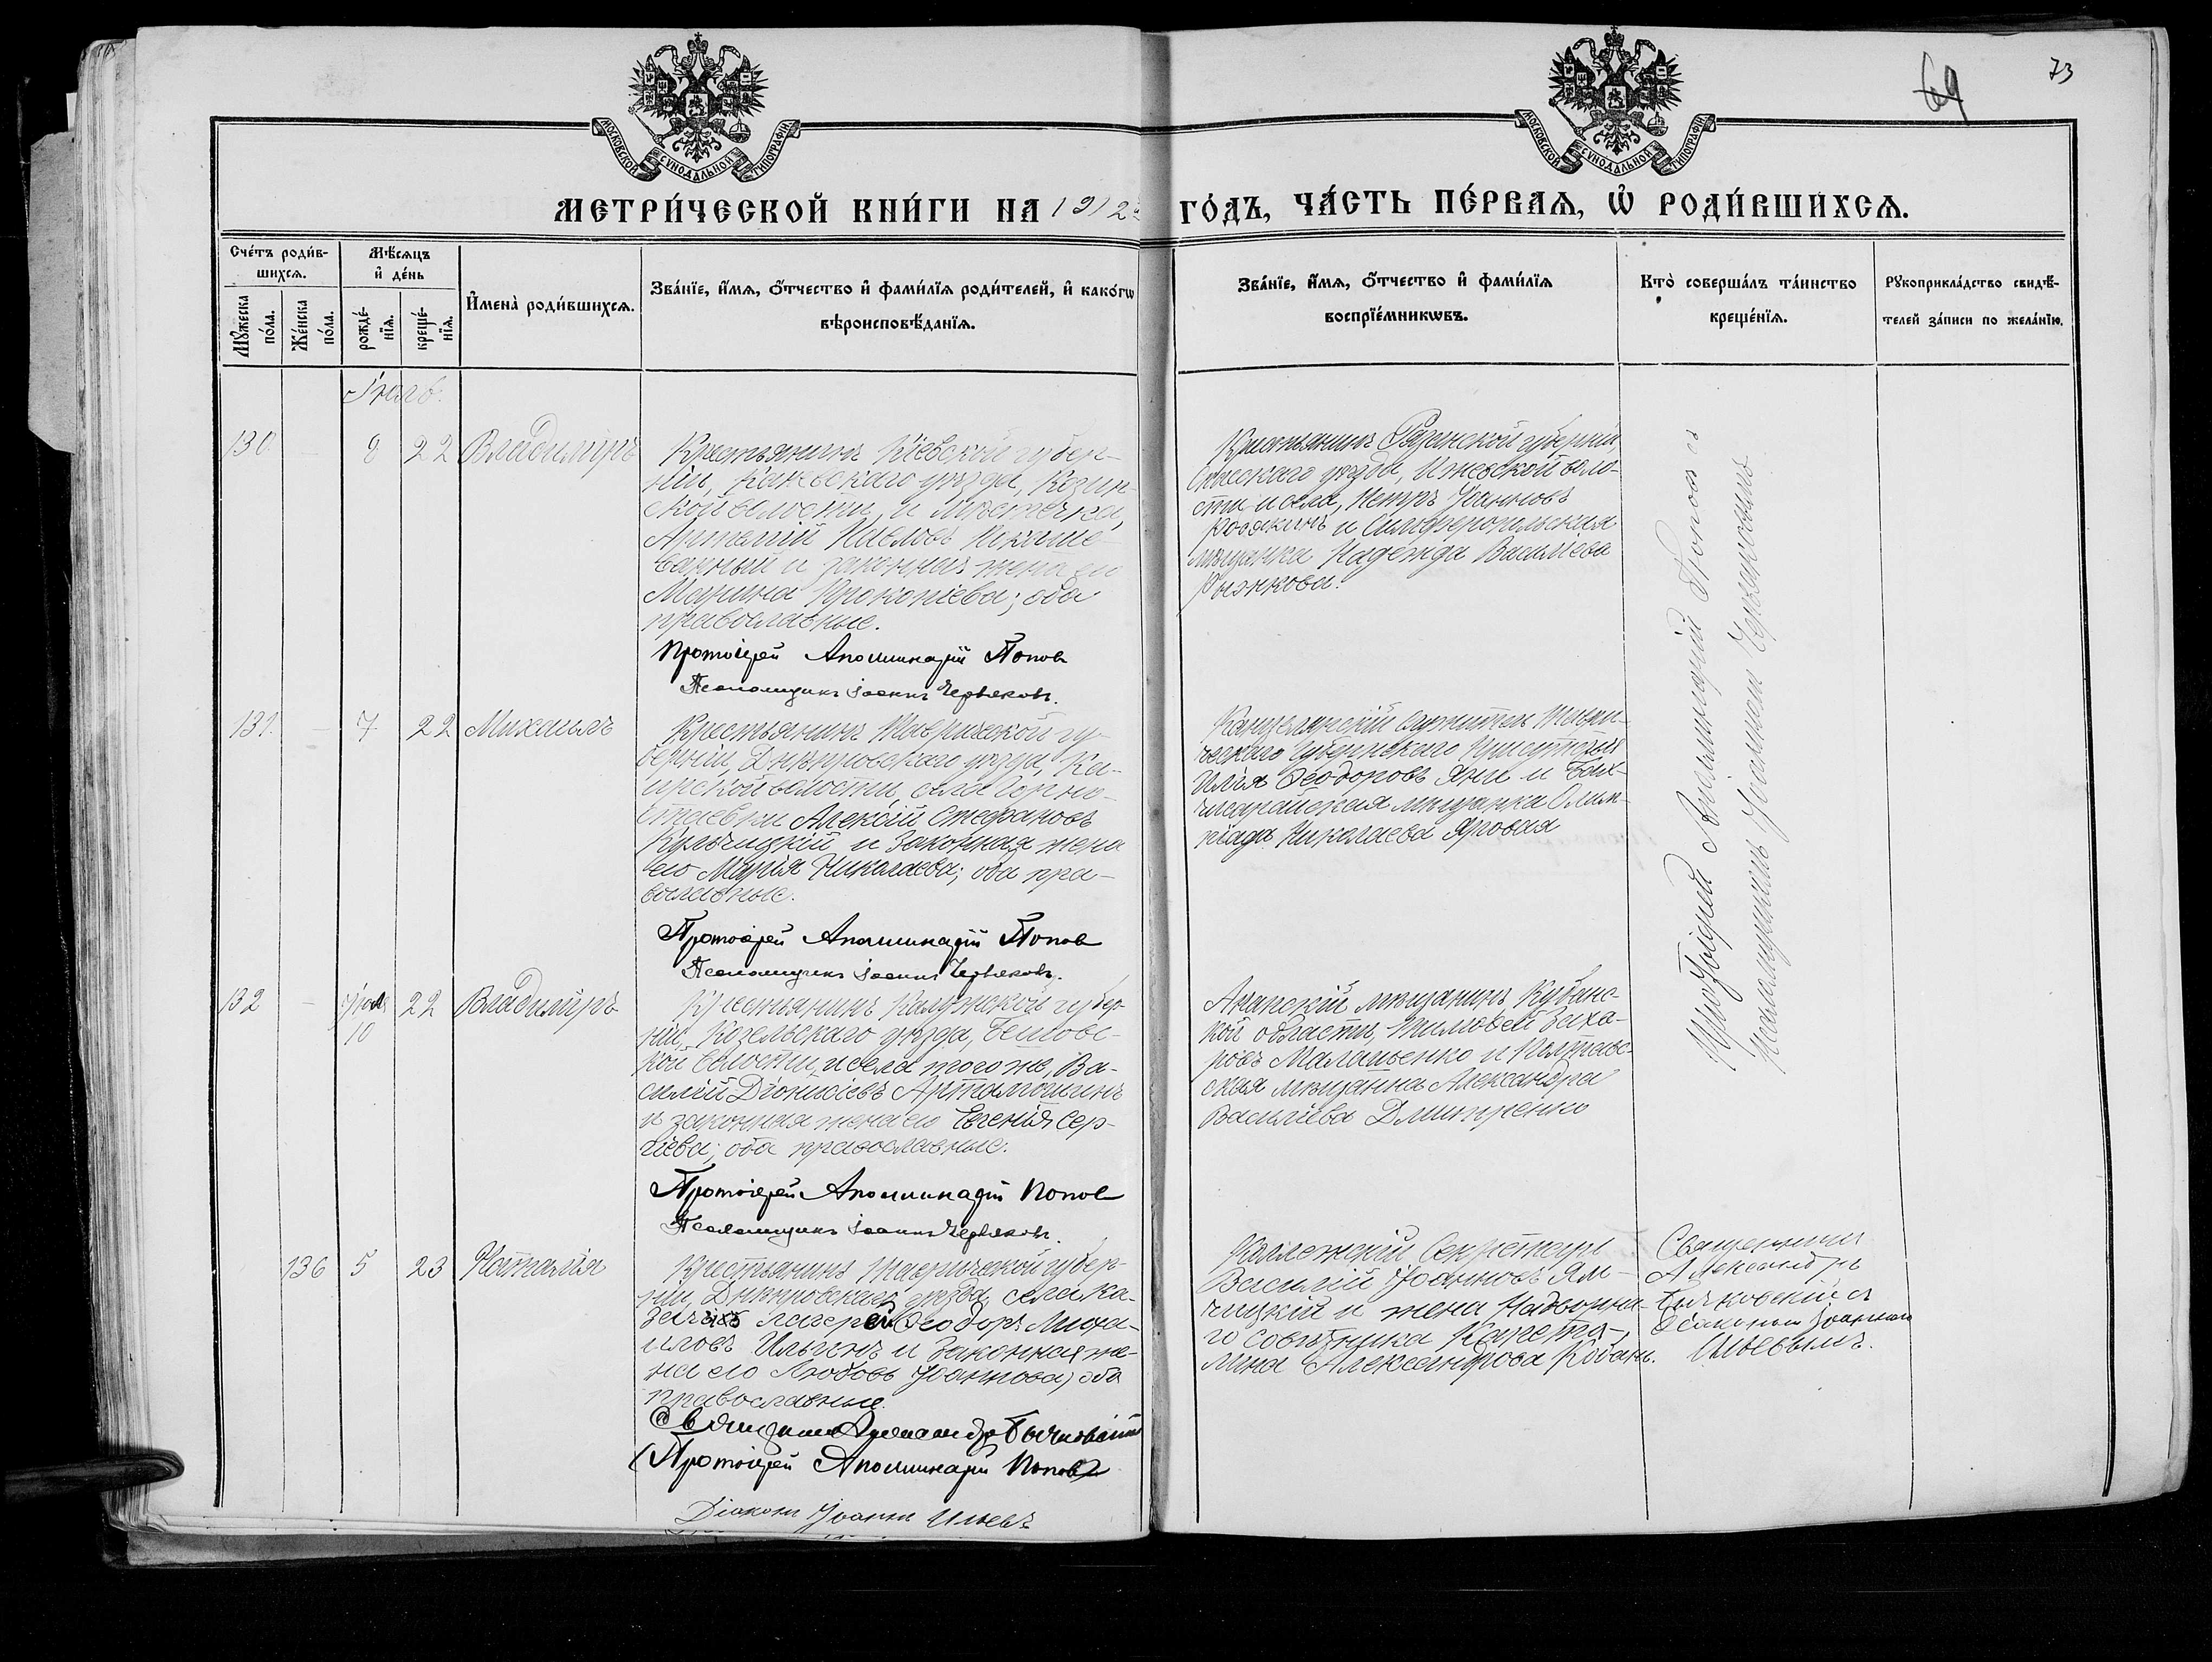 69
73
МОСКОВСКОЙ СѴНОДАЛЬНОЙ ТИПОГРАФІИ
МОСКОВСКОЙ СѴНОДАЛЬНОЙ ТИПОГРАФІИ
МЕТРИ́ЧЕСКОЙ КНИ́ГИ НА 1912й ГО́ДЪ, ЧА́СТЬ ПЕ́РВАѦ, Ѡ҆ РОДИ́ВШИХСѦ.
Сче́тъ роди́в-
шихсѧ.
Мꙋ́жеска по́ла.
Же́нска по́ла.
Мѣ́сѧцъ
и҆ де́нь
рожде́-
нїѧ.
креще́-
нїѧ.
И҆мена̀ роди́вшихсѧ.
Зва́нїе, и҆́мѧ, ѻ҆́тчество и҆ фами́лїѧ роди́телей, и҆ како́гѡ
вѣроисповѣ́данїѧ.
Зва́нїе, и҆́мѧ, ѻ҆́тчество и҆ фами́лїѧ
воспрїе́мникѡвъ.
Кто̀ соверша́лъ та́инство
креще́нїѧ.
Рꙋкоприкла́дство свидѣ́-
телей за́писи по жела́нїю.
Іюль.
130
8
22
Владиміръ
Крестьянинъ Кіевской губер-
ніи, Каневскаго уѣзда, Козин-
ской волости, и мѣстечка,
Артемій Павловъ
и законная жена его
Марина Прокопіева; оба
православные.
Протоіерей Аполлинарій Попов
Псаломщикъ Іоаннъ Червяковъ.
Крестьянинъ Рязанской губерніи,
Спасскаго уѣзда, Ижевской воло-
сти и села, Петръ Іоанновъ
и Симферопольская
мѣщанка Надежда Василіева
Рыжкова.
Протоіерей Аполлинарій Поповъ съ
псаломщикомъ Іоанномъ Червяковымъ
131.
7
22
Михаилъ
Крестьянинъ Таврической гу-
берніи, Днѣпровскаго уѣзда, Ка-
ирской волости, села Горно-
стаевки Алексій Стефановъ
Кульчицкій и законная жена
его Марія Николаева; оба пра-
вославные.
Протоіерей Аполлинарій Попов
Псаломщикъ Іоаннъ Червяковъ.
Канцелярскій служитель Таври-
ческаго Губернскаго Присутствія
Илія Ѳеодоровъ Яни и Бах-
чисарайская мѣщанка Олим-
піада Николаева Яровая
132
Іюля
10
22
Владиміръ
Крестьянинъ Калужской губер-
ніи, Козельскаго уѣзда,
кой волости, и села того же, Ва-
силій Діонисіевъ Артамошинъ
и законная жена его Евгенія Сер-
гіева; оба православные.
Протоіерей Аполлинарій Попов
Псаломщикъ Іоаннъ Червяковъ.
Анапскій мѣщанинъ Кубанс-
кой области, Тимоѳей Заха-
ровъ и Полтавс-
кая мѣщанка Александра
Василіева Дмитренко
136
5
23
Наталія
Крестьянинъ Таврической губер-
ніи, Днѣпровскаго уѣзда, села Ка-
зачьих лагерей Ѳеодоръ Миха-
иловъ Ильинъ и законная же-
на его Любовь Іоаннова; оба
православные.
Священникъ Александръ Бычковскій
Протоіерей Аполлинарій Поповъ
Діаконъ Іоаннъ Ильевъ
Коллежскій Секретарь
Василій Іоанновъ Ям-
чицкій и жена Надворна-
го Совѣтника Капето-
лина Александрова Кобань.
Священникъ
Александръ
Бычковскій съ
діакономъ Іоанномъ
Ильевымъ.